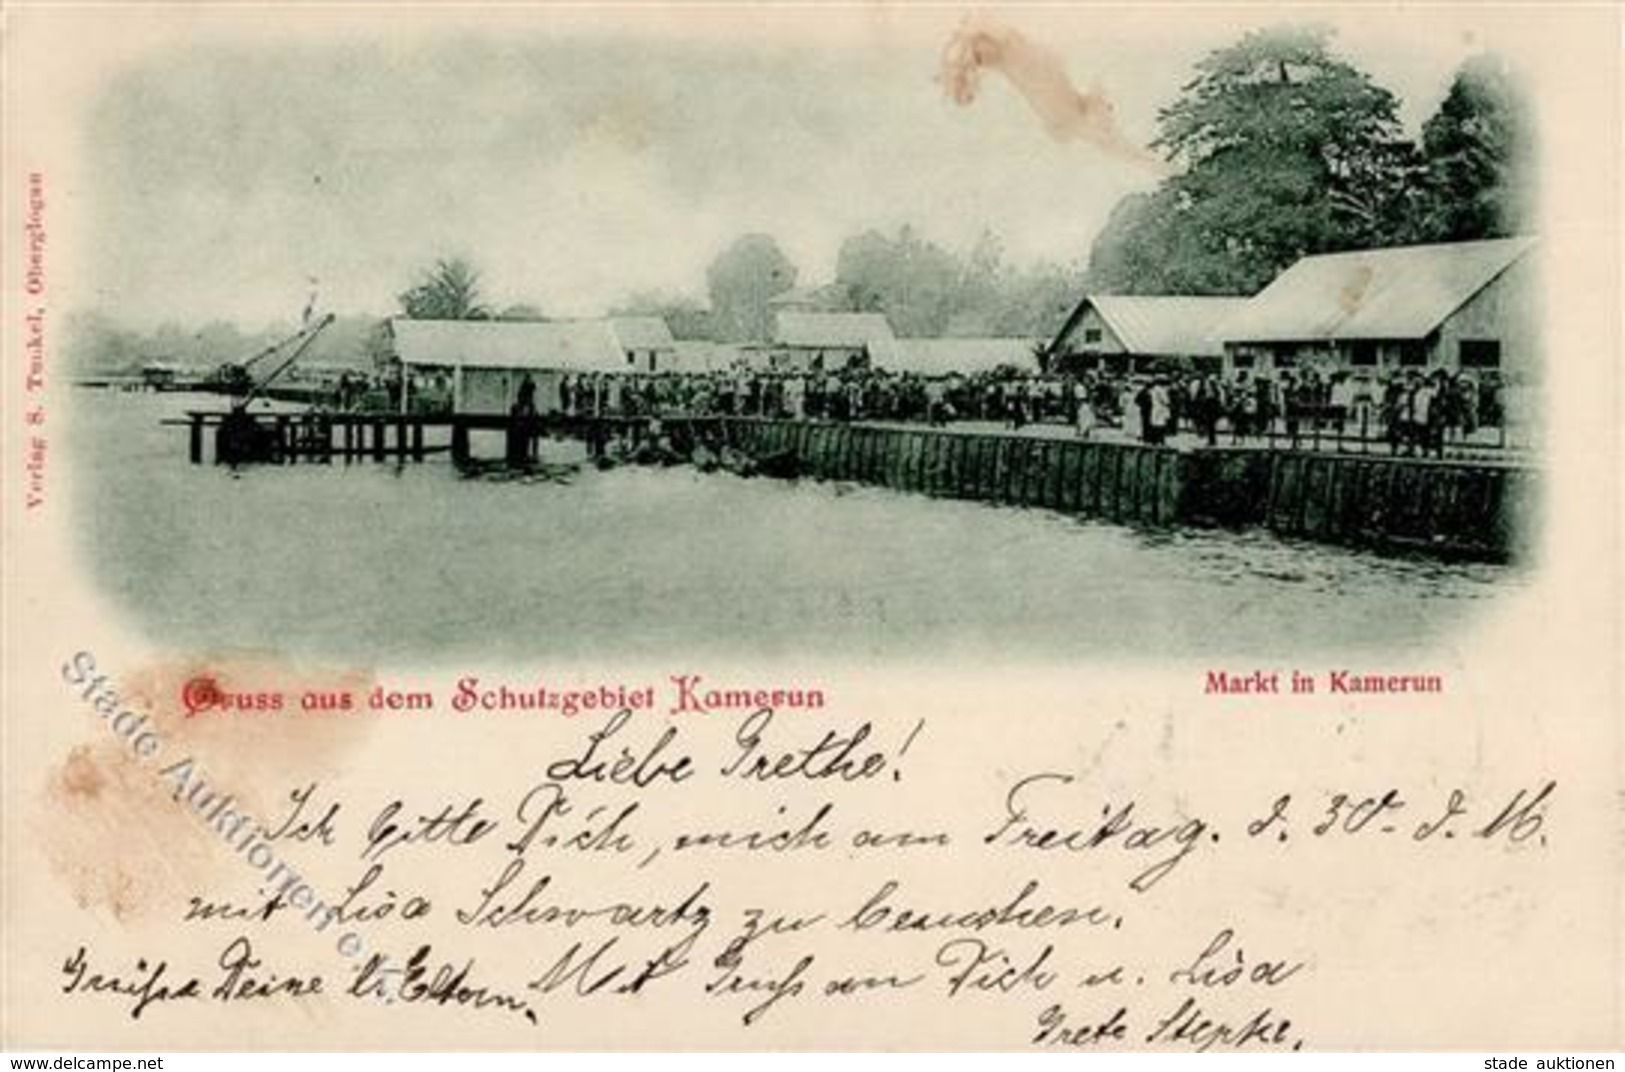 Verlag S. Tunkel, Oberglogau
Gruss aus dem Schutzgebiet Kamerun
Markt in Kamerun
Liebe Grethe!
Ich bitte Dich, mich am Freitag. d. 30. d. M.
mit Lisa Schwartz zu besuchen.
Grüße Deine l. Eltern. Mit Gruß an Dich u. Lisa
Grete Stepke.
Stade Auktionen
www.delcampe.net
stade auktionen